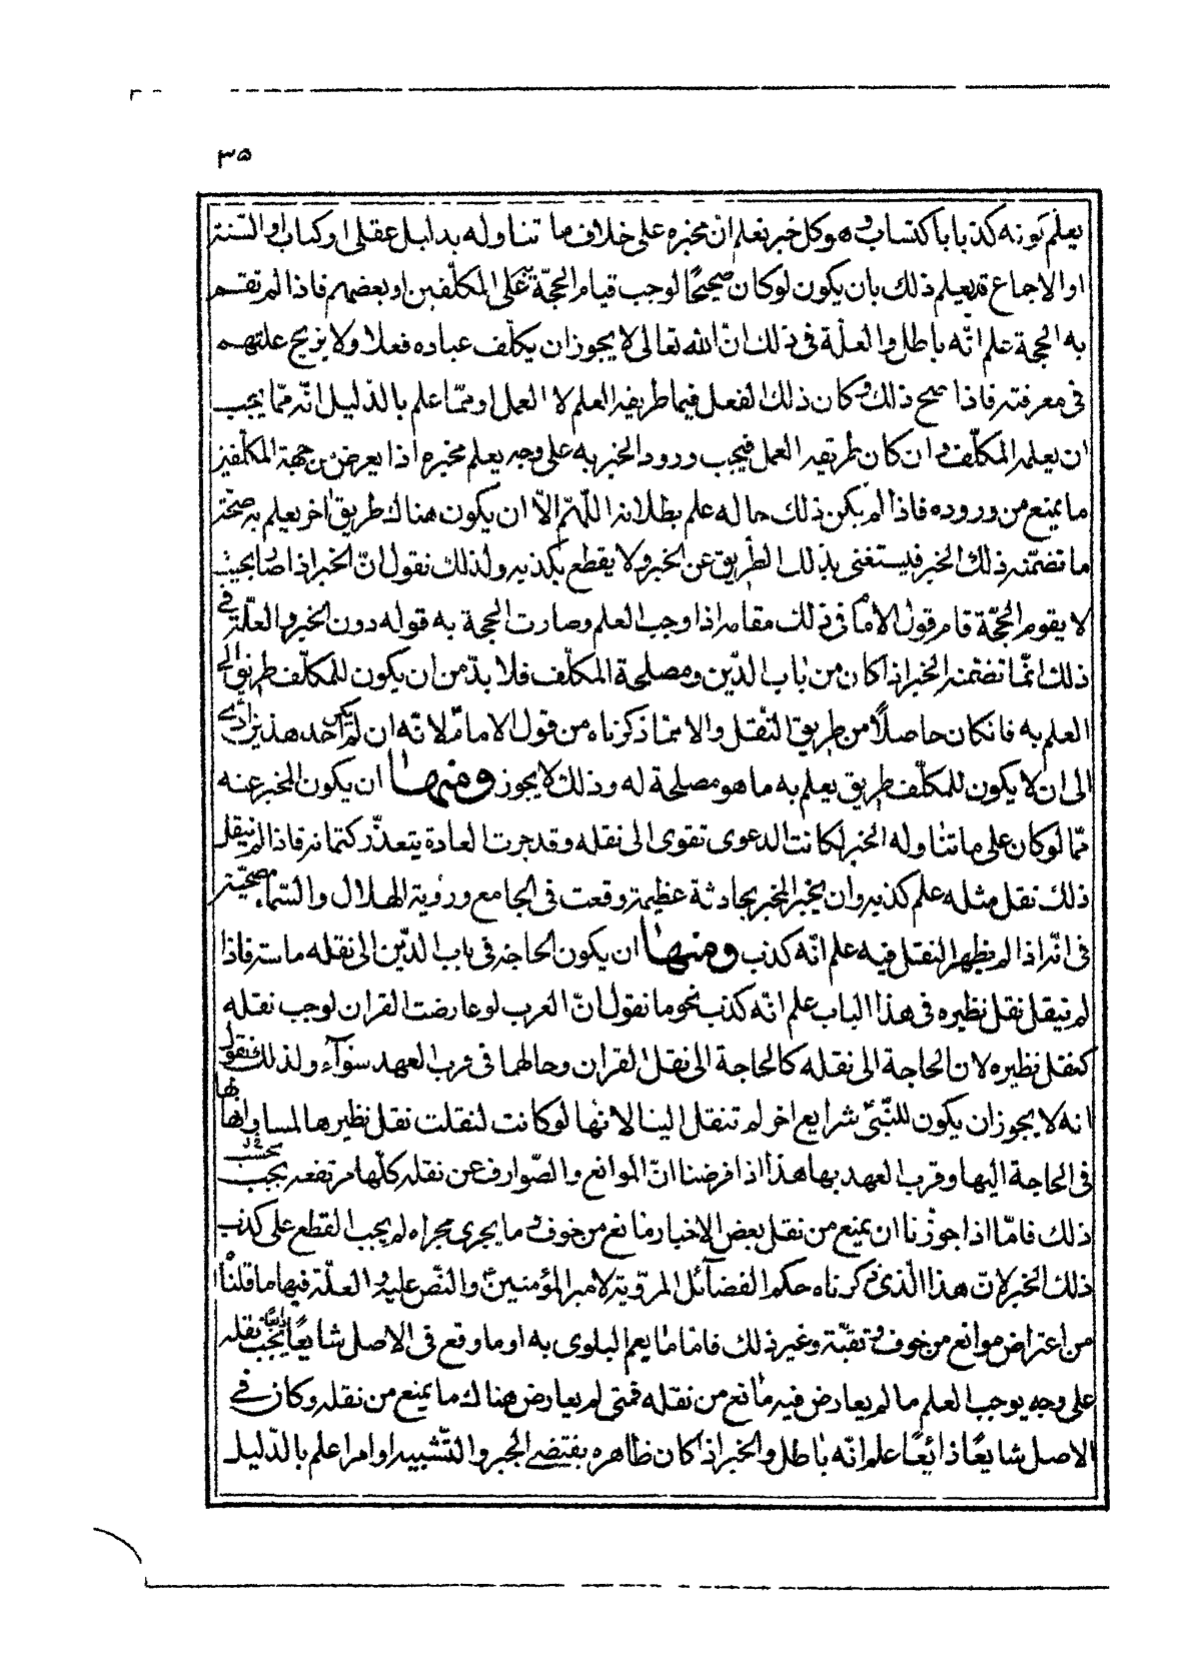 ۳۵
يعلم كونه كذبا باكتساب وهو كل خبر نعلم ان مخبره على خلاف ما تناوله بدليل عقلى او كتاب او السّنة
او الاجماع قد يعلم ذلك بان يكون لو كان صحيحًا لوجب قيام الحجّة به على المكلّفين او بعضهم فاذا لم تقم
به الحجة علم انّه باطل والعلّة فى ذلك انّ الله تعالى لا يجوز ان يكلّف عباده فعلا ولا يزيح علتهم
فى معرفته فاذا صح ذلك وكان ذلك الفعل فيما طريقه العلم لا العمل او ممّا علم بالدّليل انّه ممّا يجب
ان يعلمه المكلّف و ان كان طريقه العمل فيجب ورود الخبر به على وجه يعلم مخبره اذا يعرض من جهة المكلّفين
ما يمنع من وروده فاذا لم يكن ذلك حاله علم بطلانه اللّهمّ الاّ ان يكون هناك طريق اخر يعلم به صحّة
ما تضمّنه ذلك الخبر فيستغنى بذلك الطّريق عن الخبر ولا يقطع بكذبه ولذلك نقول انّ الخبر اذا صار بحيث
لا يقوم الحجّة قام قول الامام فى ذلك مقامه اذا وجب العلم وصارت الحجة به قوله دون الخبر والعلّة فى
ذلك انّما تضمّنه الخبر اذا كان من باب الدّين ومصلحة المكلّف فلا بدّ من ان يكون للمكلّف طريق الى
العلم به فان كان حاصلًا من طريق النّقل والا ممّا ذكرناه من قول الامام لانّه ان لم يكن احد هذين ادى
الى ان لا يكون للمكلّف طريق يعلم به ما هو مصلحة له وذلك لا يجوز ومنها ان يكون المخبر عنه
ممّا لو كان على ما تناوله الخبر لكانت الدعوى تقوى الى نقله وقد جرت العادة يتعذّر كتمانه فاذا لم ينقل
ذلك نقل مثله علم كذبه وان يخبر المخبر بحادثة عظيمة وقعت فى الجامع ورؤية الهلال والسّماء مصحّية
فى انّه اذا لم يظهر النقل فيه علم انّه كذب ومنها ان يكون الحاجة فى باب الدّين الى نقله ماسة فاذا
لم ينقل نقل نظيره فى هذا الباب علم انّه كذب نحو ما نقول انّ العرب لو عارضت القران لوجب نقله
كنقل نظيره لان الحاجة الى نقله كالحاجة الى نقل القران وحالهما فى قرب العهد سوآء ولذلك نقول
انه لا يجوز ان يكون للنّبىّ شرايع اخر لم تنقل الينا لانها لو كانت لنقلت نقل نظيرها لمساواتها لها
فى الحاجة اليها وقرب العهد بها هذا اذا فرضنا انّ الموانع والصّوارف عن نقله كلّها مرتفعه يجب
ذلك فامّا اذا جوزنا ان يمنع من نقل بعض الاخبار مانع من خوف و ما يجرى مجراه لم يجب القطع على كذب
ذلك الخبر لانّ هذا الّذى ذكرناه حكم الفضآئل المرويّة لامير المؤمنين والنّص عليه والعلّة فيها ما قلناه
من اعتراض موانع من خوف و تقيّة وغير ذلك فامّا ما يعم البلوى به او ما وقع فى الاصل شايعًا ذايعًا يجب نقله
على وجه يوجب العلم ما لم يعارض فيه مانع من نقله فمتى لم يعارض هناك ما يمنع من نقله وكان فى
الاصل شايعًا ذائعًا علم انّه باطل والخبر اذا كان ظاهره يقتضى الجبر والتّشبيه او امرا علم بالدّليل